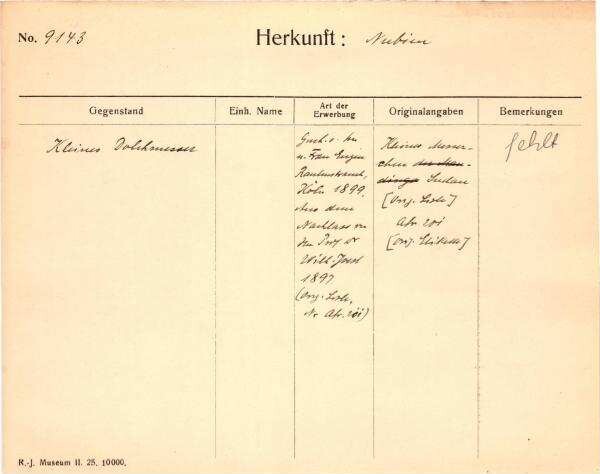 No. 9143
Herkunft: Nubien
Gegenstand
Einh. Name
Art der Erwerbung
Originalangaben
Bemerkungen
Kleines Dolchmesser
Gesch. v. Hr.
u. Frau Eugen
Rautenstrauch,
Köln 1899.
Aus dem
Nachlass v.
des Prof. Dr
Wilh. Joest
1897
(Orig. Liste,
Nr. Afr. 201)
Kleines Messer-
chen der Man-
dingo Sudan
[Orig. Liste]
Afr. 201
[Orig. Etikette]
fehlt
R.-J. Museum II. 25. 10000.